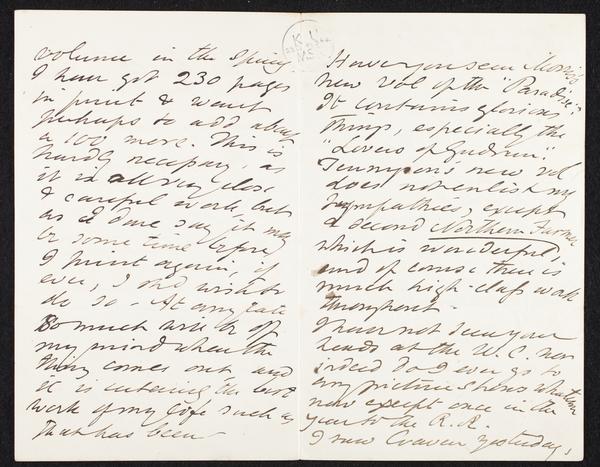 volume in the Spring
I have got 230 pages
in print & want
perhaps to add about
a 100 more. This is
hardly necessary, as
it is all very close
& careful work but
as I dare say it may
be some time before
I print again, if
ever, I shd wish to
do so – At any rate
so much will be off
my mind when the
thing comes out and
it is the best
work of my life such as
that has been
Have you seen Morris's
new vol of the "Paradise".
It contains glorious
things, especially the
"Lovers of Gudrun".
Tennyson's new vol
does not enlist my
sympathies, except
a second Northern Farmer
which is wonderful,
and of course there is
much high-class work
throughout –
I have not seen your
heads at the W.C. nor
indeed do I ever go to
any picture shows whatever
now except once in the
year to the R.A.
I saw Craven yesterday,